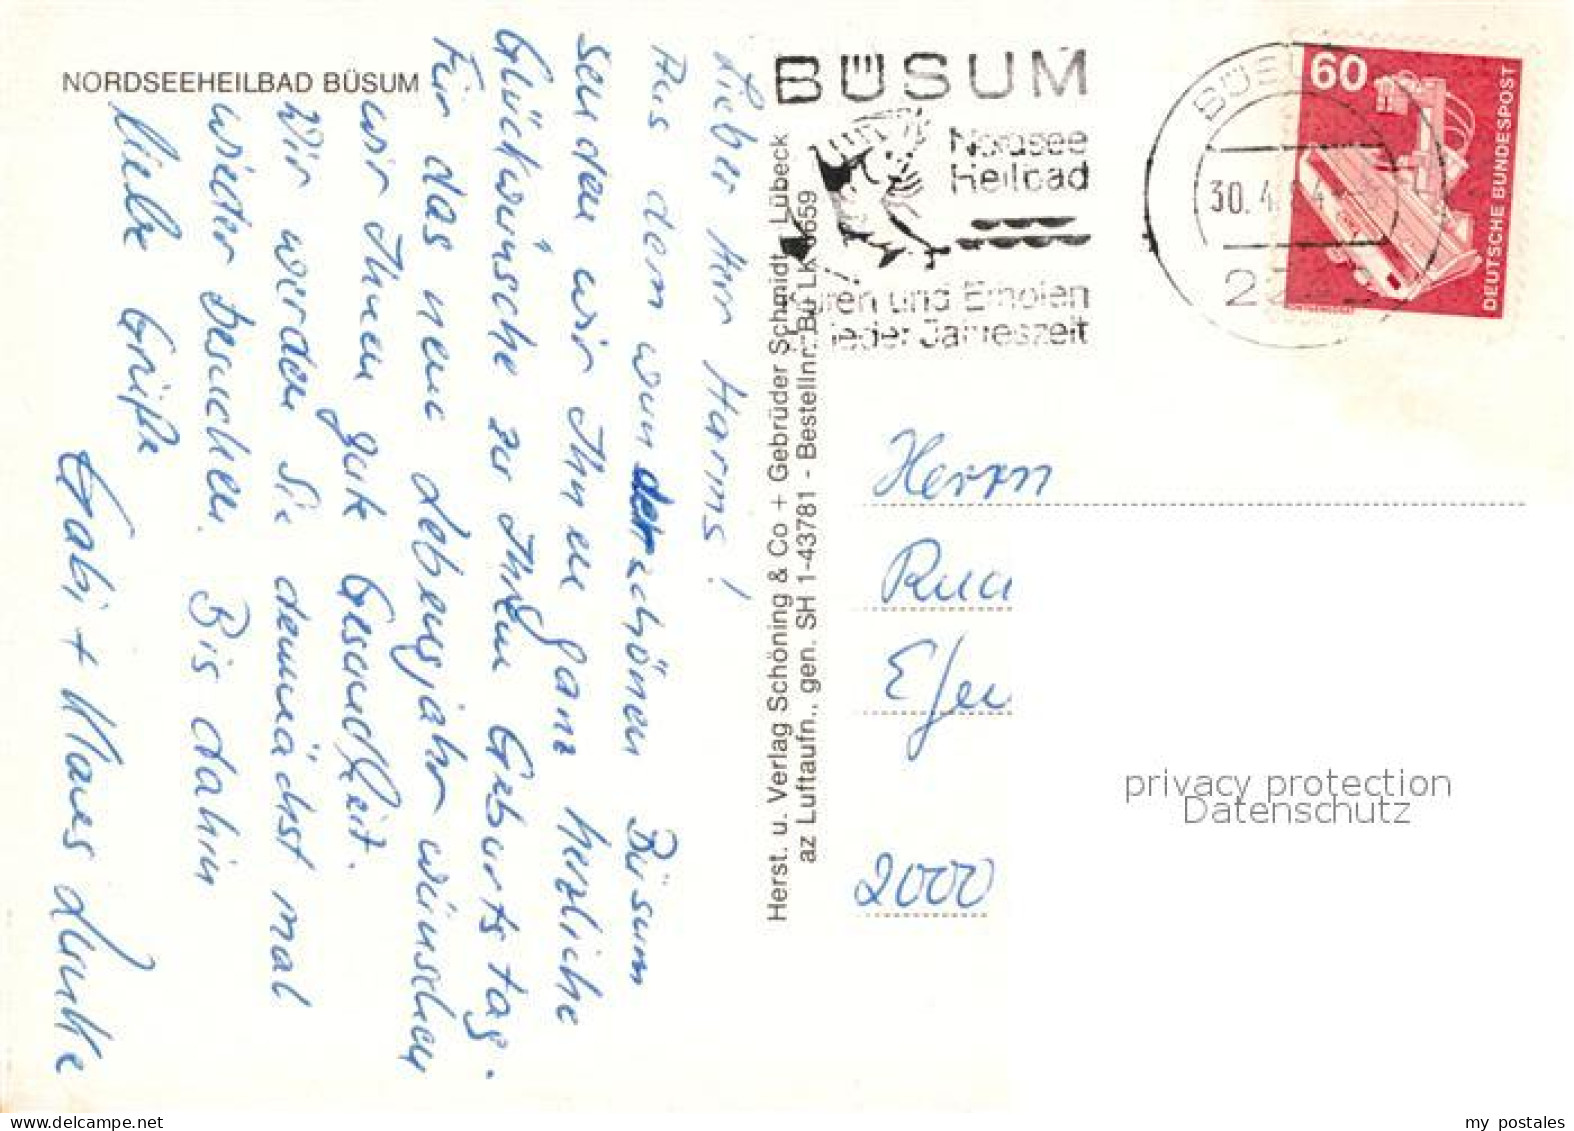 NORDSEEHEILBAD BÜSUM
Lieber Herr Harms!
Aus dem wunderschönen Büsum
senden wir Ihnen ganz herzliche
Glückwünsche zu Ihrem Geburtstag.
Für das neue Lebensjahr wünschen
wir Ihnen gute Gesundheit.
Wir werden Sie demnächst mal
wieder besuchen. Bis dahin
liebe Grüße
Gabi + Klaus
Herst. u. Verlag Schöning & Co + Gebrüder Schmidt, Lübeck
az Luftaufn., gen. SH 1-43781 - Bestellnr.
BÜSUM
Nordsee
Heilbad
Kuren und Erholen
jeder Jahreszeit
30.4.
60
DEUTSCHE BUNDESPOST
Herrn
2000
privacy protection
Datenschutz
my postales